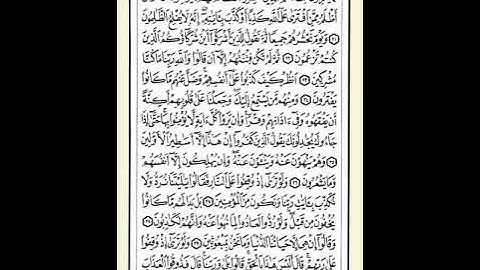 أَظْلَمُ مِمَّنِ ٱفْتَرَىٰ عَلَى ٱللَّهِ كَذِبًا أَوْ كَذَّبَ بِـَٔايَٰتِهِۦٓ ۗ إِنَّهُۥ لَا يُفْلِحُ ٱلظَّٰلِمُونَ
٢١ وَيَوْمَ نَحْشُرُهُمْ جَمِيعًا ثُمَّ نَقُولُ لِلَّذِينَ أَشْرَكُوٓا۟ أَيْنَ شُرَكَآؤُكُمُ ٱلَّذِينَ
كُنتُمْ تَزْعُمُونَ ٢٢ ثُمَّ لَمْ تَكُن فِتْنَتُهُمْ إِلَّآ أَن قَالُوا۟ وَٱللَّهِ رَبِّنَا مَا كُنَّا
مُشْرِكِينَ ٢٣ ٱنظُرْ كَيْفَ كَذَبُوا۟ عَلَىٰٓ أَنفُسِهِمْ ۚ وَضَلَّ عَنْهُم مَّا كَانُوا۟
يَفْتَرُونَ ٢٤ وَمِنْهُم مَّن يَسْتَمِعُ إِلَيْكَ ۖ وَجَعَلْنَا عَلَىٰ قُلُوبِهِمْ أَكِنَّةً
أَن يَفْقَهُوهُ وَفِىٓ ءَاذَانِهِمْ وَقْرًا ۚ وَإِن يَرَوْا۟ كُلَّ ءَايَةٍ لَّا يُؤْمِنُوا۟ بِهَا ۚ حَتَّىٰٓ إِذَا
جَآءُوكَ يُجَٰدِلُونَكَ يَقُولُ ٱلَّذِينَ كَفَرُوٓا۟ إِنْ هَٰذَآ إِلَّآ أَسَٰطِيرُ ٱلْأَوَّلِينَ
٢٥ وَهُمْ يَنْهَوْنَ عَنْهُ وَيَنْـَٔوْنَ عَنْهُ ۖ وَإِن يُهْلِكُونَ إِلَّآ أَنفُسَهُمْ
وَمَا يَشْعُرُونَ ٢٦ وَلَوْ تَرَىٰٓ إِذْ وُقِفُوا۟ عَلَى ٱلنَّارِ فَقَالُوا۟ يَٰلَيْتَنَا نُرَدُّ وَلَا
نُكَذِّبَ بِـَٔايَٰتِ رَبِّنَا وَنَكُونَ مِنَ ٱلْمُؤْمِنِينَ ٢٧ بَلْ بَدَا لَهُم مَّا كَانُوا۟
يُخْفُونَ مِن قَبْلُ ۖ وَلَوْ رُدُّوا۟ لَعَادُوا۟ لِمَا نُهُوا۟ عَنْهُ وَإِنَّهُمْ لَكَٰذِبُونَ ٢٨
وَقَالُوٓا۟ إِنْ هِىَ إِلَّا حَيَاتُنَا ٱلدُّنْيَا وَمَا نَحْنُ بِمَبْعُوثِينَ ٢٩ وَلَوْ تَرَىٰٓ إِذْ وُقِفُوا۟
عَلَىٰ رَبِّهِمْ ۚ قَالَ أَلَيْسَ هَٰذَا بِٱلْحَقِّ ۚ قَالُوا۟ بَلَىٰ وَرَبِّنَا ۚ قَالَ فَذُوقُوا۟ ٱلْعَذَابَ